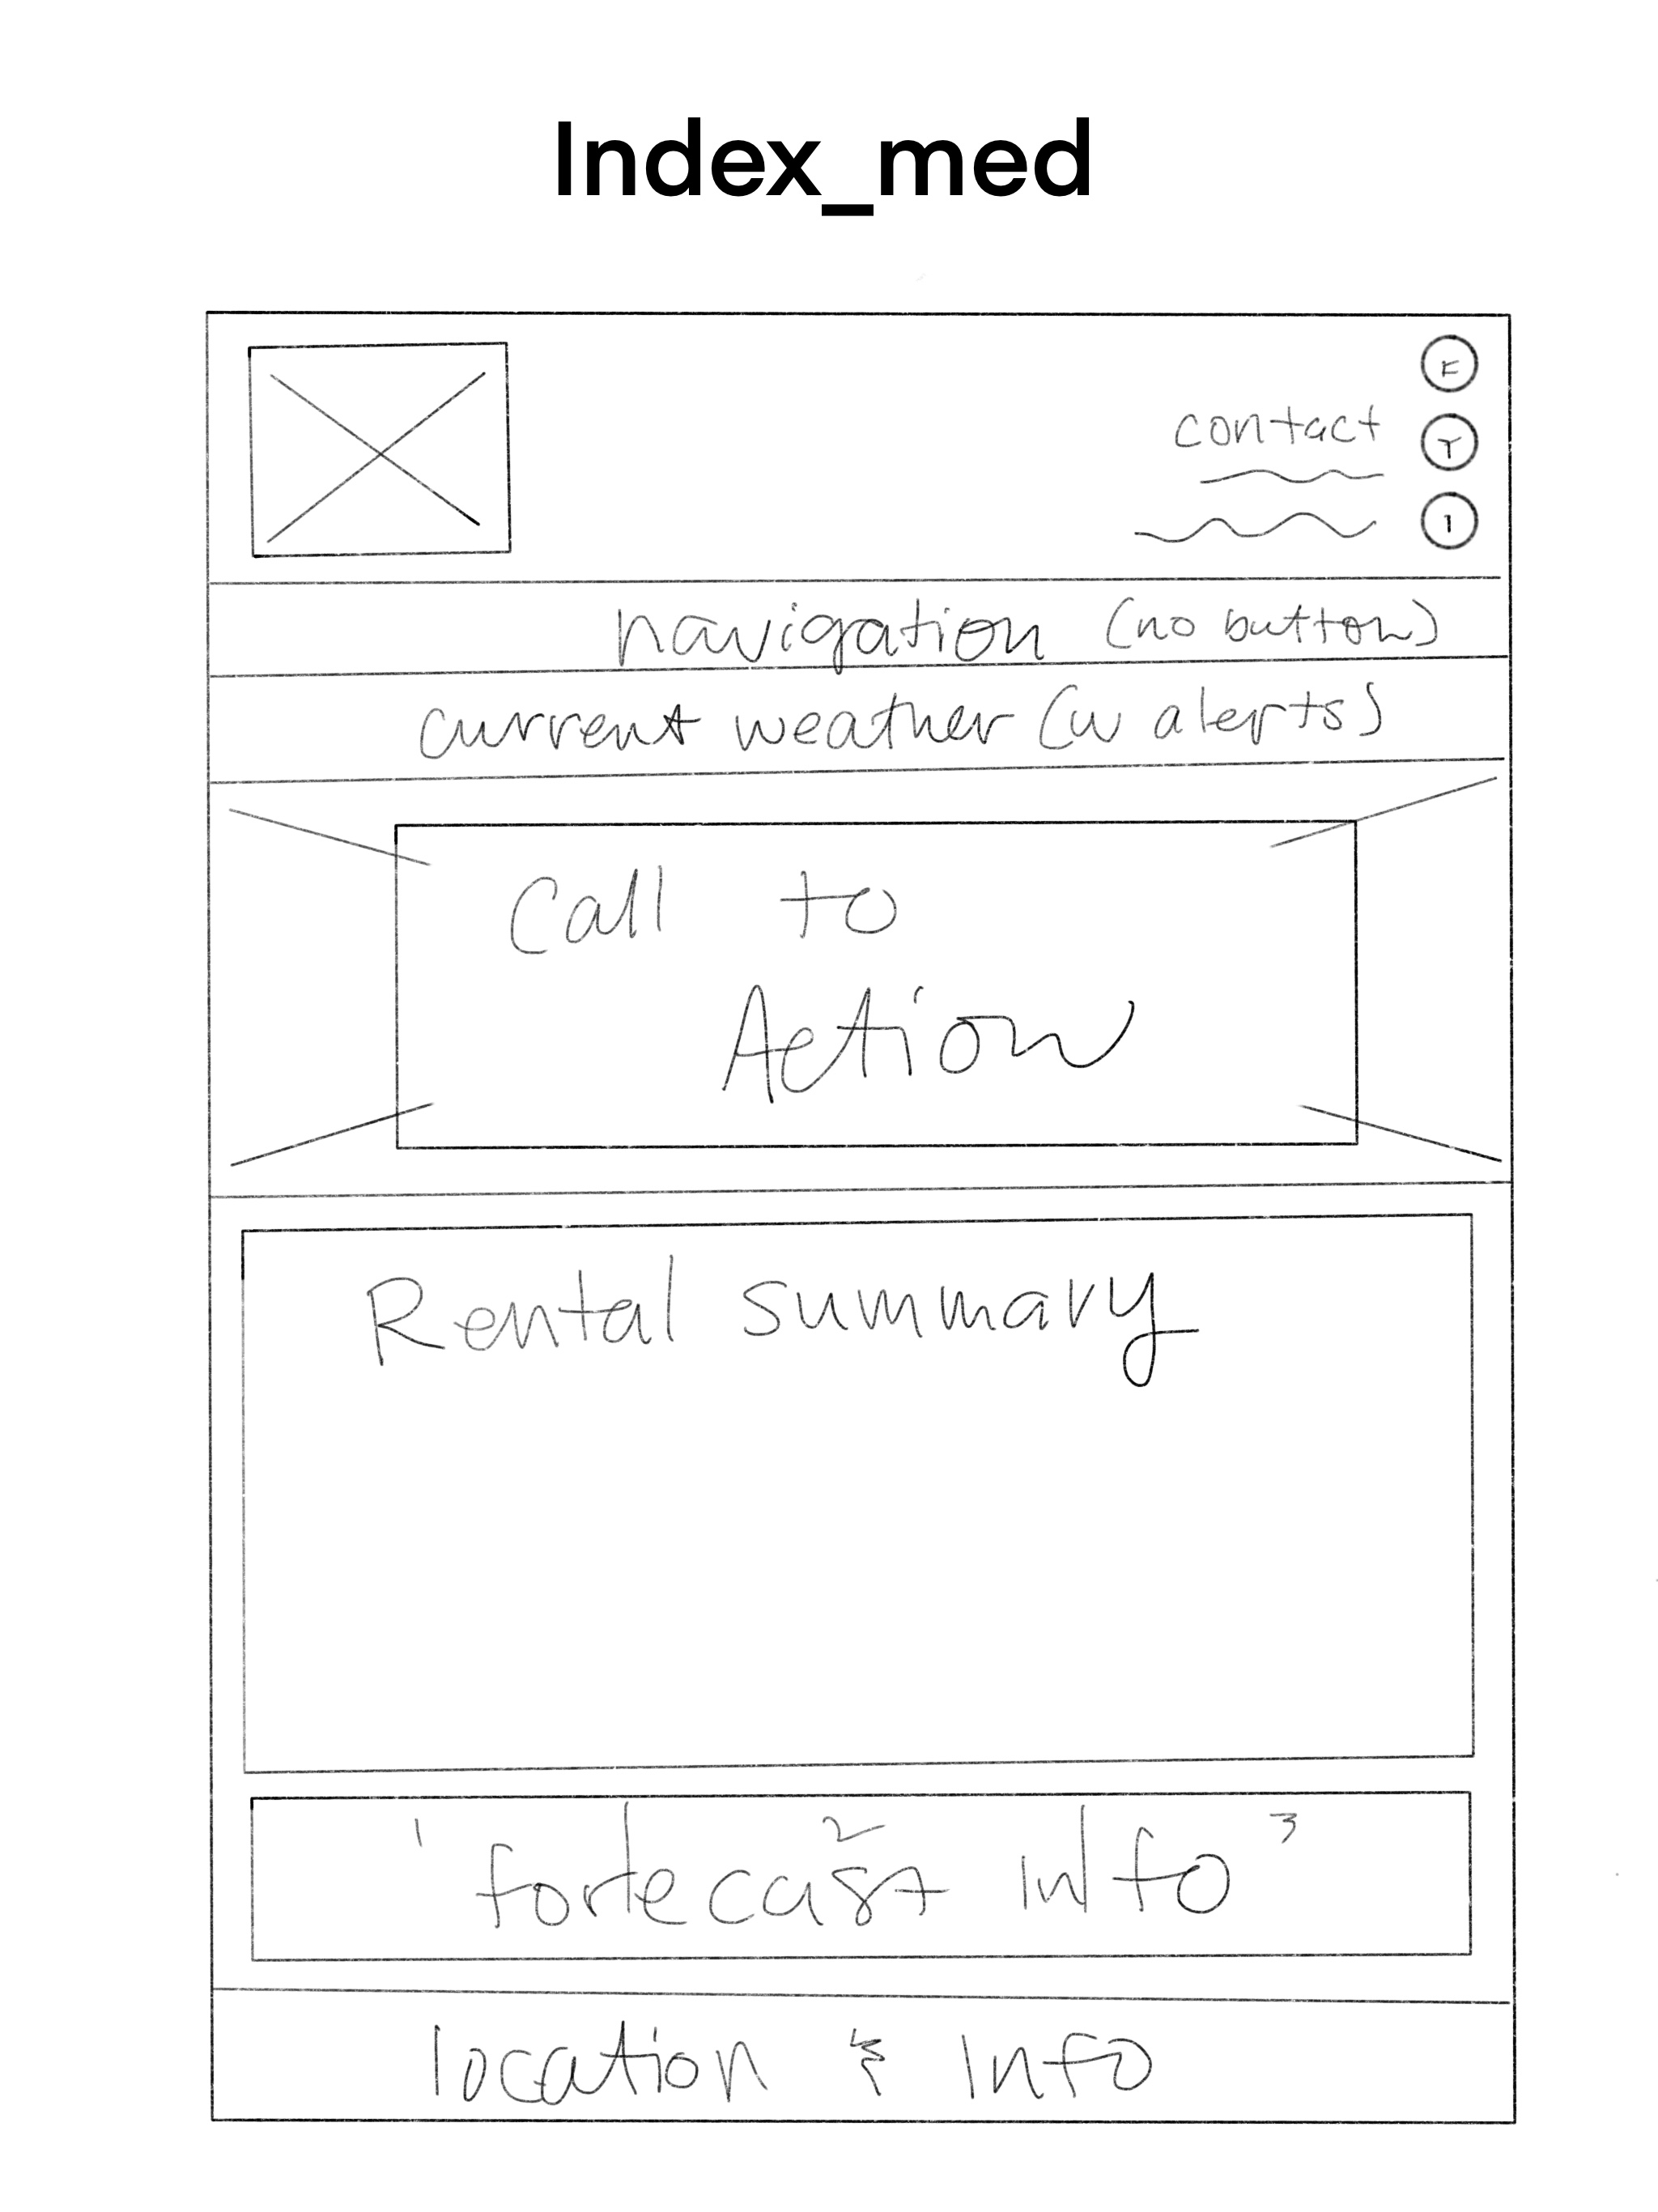 Index_med
F
contact
T
I
navigation (no button)
current weather (w alerts)
Call to
Action
Rental summary
1 2 3
forecast info
location & Info